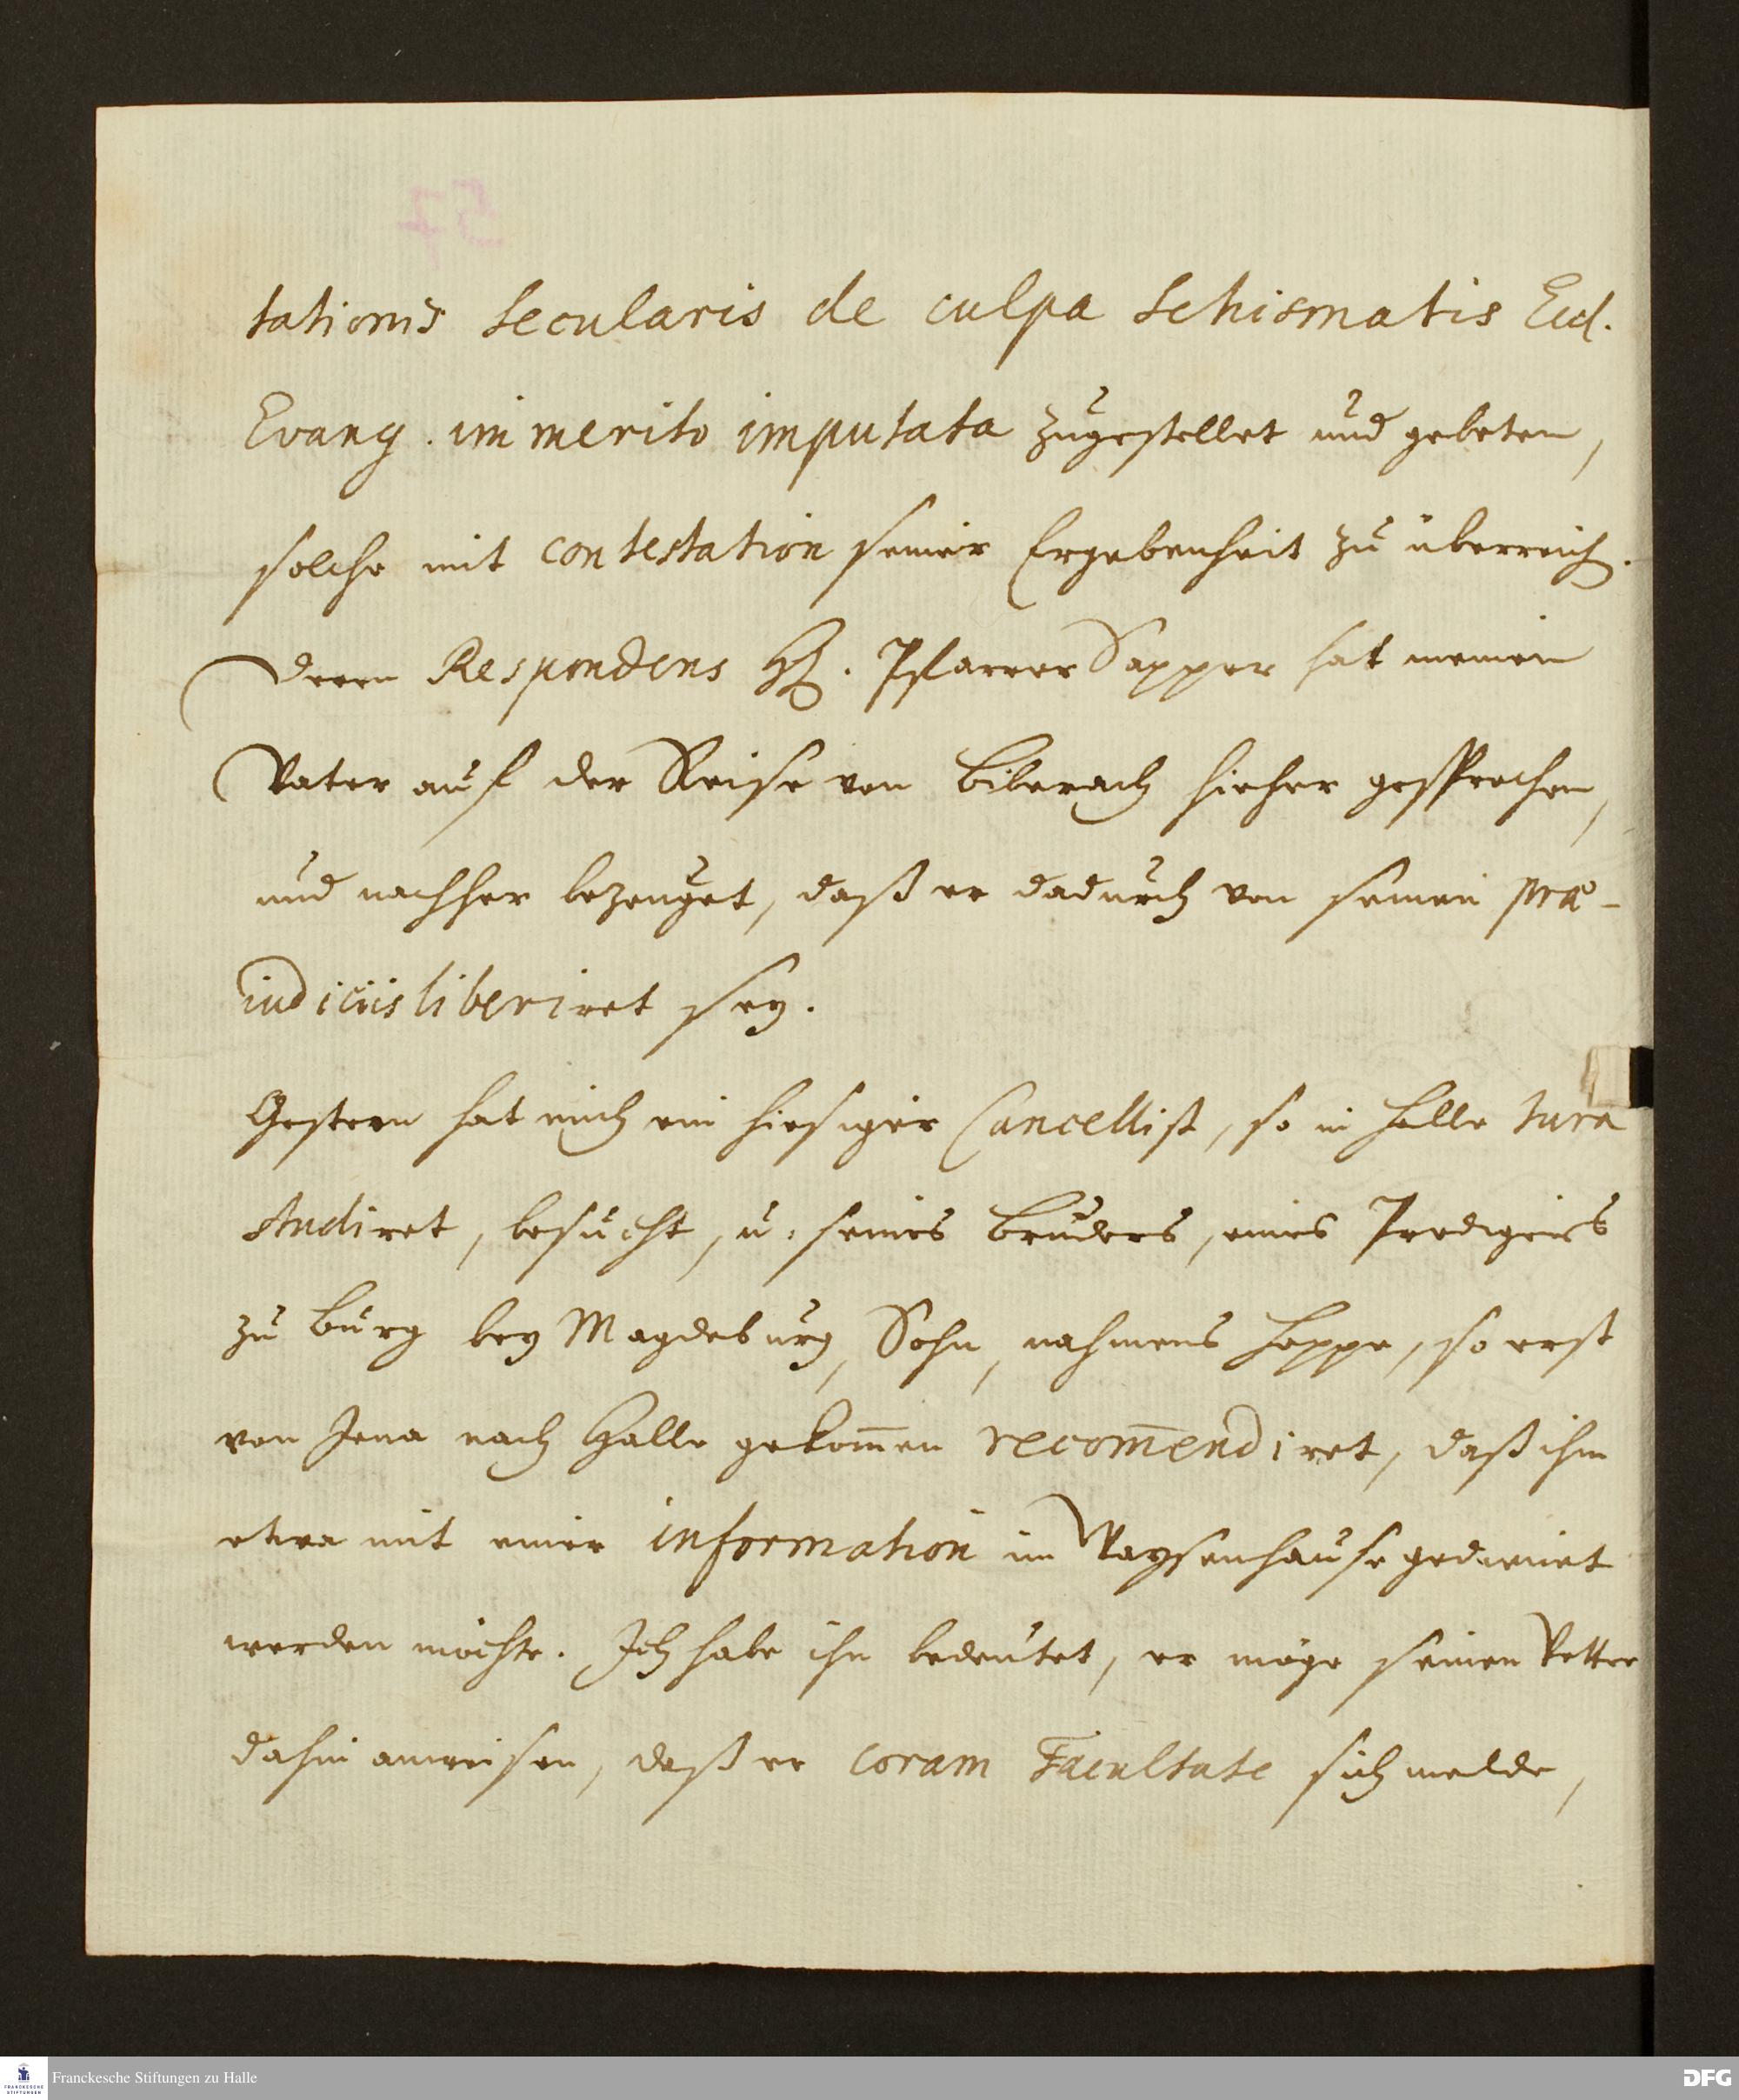 tationis secularis de culpa Schismatis Eccl.
Evang. immerito imputata zugestellet und gebeten,
solche mit contestation seiner Ergebenheit zu überreich.
Deren Respondens H. Pfarrer Sapper hat meinen
Vater auf der Reise von Biberach hieher gesprochen,
und nachher bezeuget, daß er dadurch von seinen præ-
iudiciis liberiret sey.
Gestern hat mich ein hiesiger Cancellist, so in Halle Jura
studiret, besucht, u. seines Bruders, eines Predigers
zu Burg bey Magdeburg, Sohn, nahmens Hoppe, so erst
von Jena nach Halle gekom̅en recom̅endiret, daß ihm
etwa mit einer information im Waysenhause gedienet
werden möchte. Ich habe ihn bedeutet, er möge seinen Vetter
dahin anweisen, daß er coram Facultate sich melde,
Franckesche Stiftungen zu Halle
FRANCKESCHE STIFTUNGEN
DFG